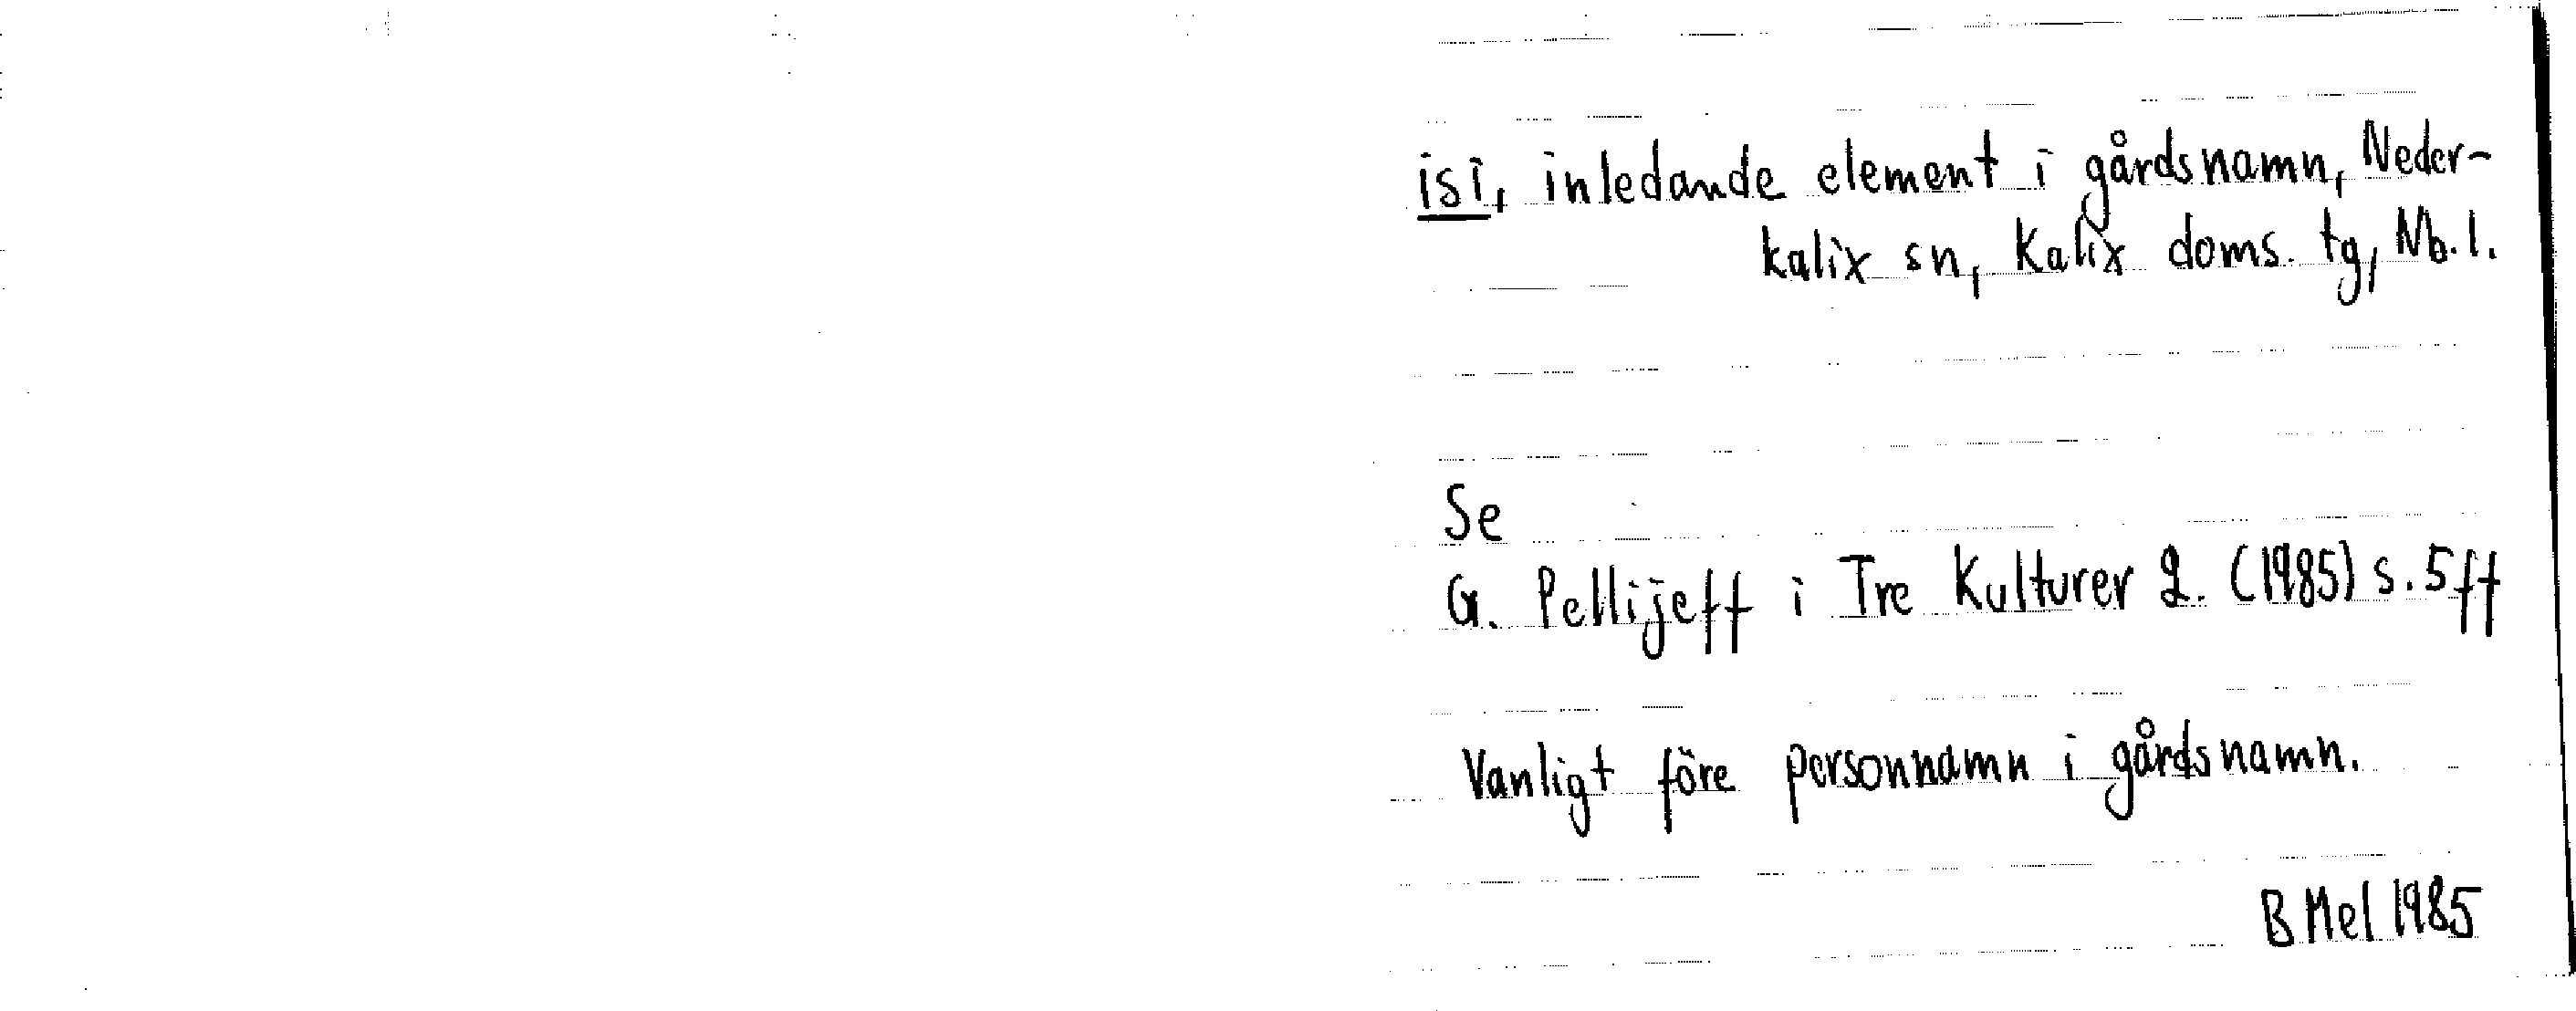 isi, inledande element i gårdsnamn, Neder-
kalix sn, Kalix doms. tg, Nb. l.
Se
G. Pellijeff i Tre Kulturer 2. (1985) s. 5 ff
Vanligt före personnamn i gårdsnamn.
B Mel 1985